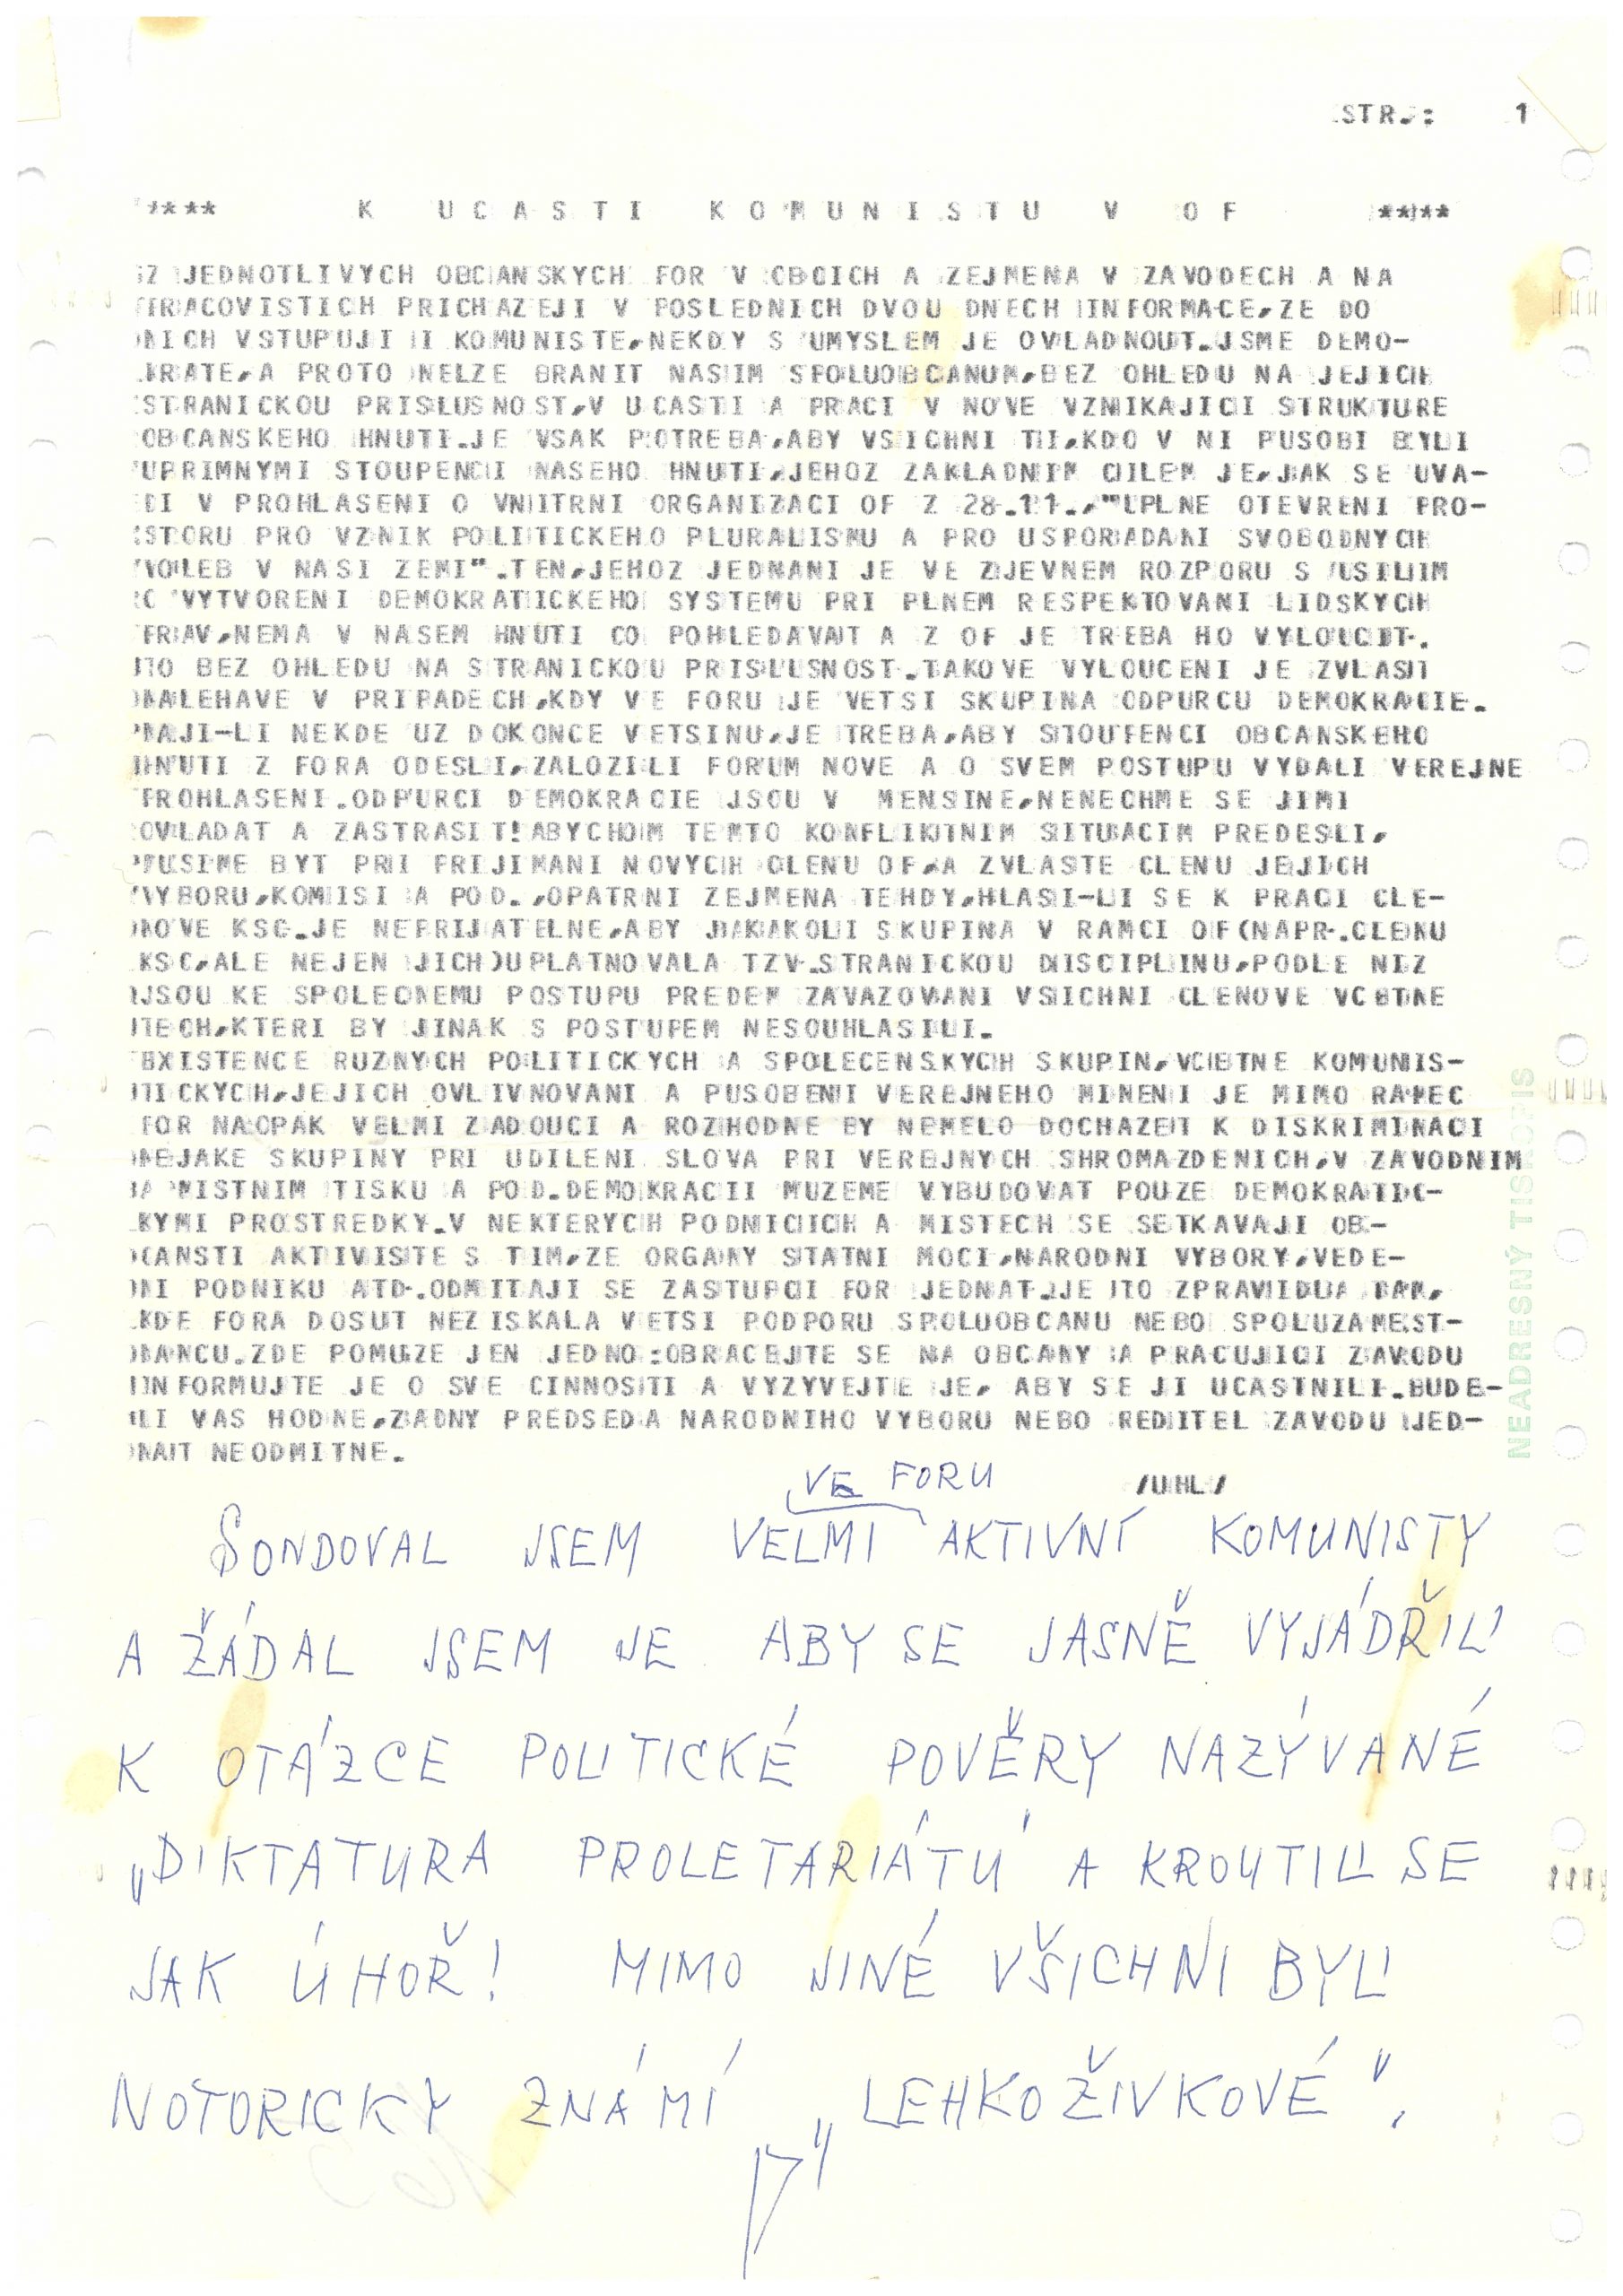 STR.: 1
***** K UCASTI KOMUNISTU V OF *****
Z JEDNOTLIVYCH OBCANSKYCH FOR V OBCICH A ZEJMENA V ZAVODECH A NA
PRACOVISTICH PRICHAZEJI V POSLEDNICH DVOU DNECH INFORMACE,ZE DO
NICH VSTUPUJI I KOMUNISTE,NEKDY S UMYSLEM JE OVLADNOUT.JSME DEMO-
KRATE,A PROTO NELZE BRANIT NASIM SPOLUOBCANUM,BEZ OHLEDU NA JEJICH
STRANICKOU PRISLUSNOST,V UCASTI A PRACI V NOVE VZNIKAJICI STRUKTURE
OBCANSKEHO HNUTI.JE VSAK POTREBA,ABY VSICHNI TI,KDO V NI PUSOBI BYLI
UPRIMNYMI STOUPENCI NASEHO HNUTI,JEHOZ ZAKLADNIM CILEM JE,JAK SE UVA-
DI V PROHLASENI O VNITRNI ORGANIZACI OF Z 28.11.,"UPLNE OTEVRENI PRO-
STORU PRO VZNIK POLITICKEHO PLURALISMU A PRO USPORADANI SVOBODNYCH
VOLEB V NASI ZEMI".TEN,JEHOZ JEDNANI JE VE ZJEVNEM ROZPORU S USILIM
O VYTVORENI DEMOKRATICKEHO SYSTEMU PRI PLNEM RESPEKTOVANI LIDSKYCH
PRAV,NEMA V NASEM HNUTI CO POHLEDAVAT A Z OF JE TREBA HO VYLOUCIT.
TO BEZ OHLEDU NA STRANICKOU PRISLUSNOST.TAKOVE VYLOUCENI JE ZVLAST
NALEHAVE V PRIPADECH,KDY VE FORU JE VETSI SKUPINA ODPURCU DEMOKRACIE.
MAJI-LI NEKDE UZ DOKONCE VETSINU,JE TREBA,ABY STOUPENCI OBCANSKEHO
HNUTI Z FORA ODESLI,ZALOZILI FORUM NOVE A O SVEM POSTUPU VYDALI VEREJNE
PROHLASENI.ODPURCI DEMOKRACIE JSOU V MENSINE,NENECHME SE JIMI
OVLADAT A ZASTRASIT!ABYCHOM TEMTO KONFLIKTNIM SITUACIM PREDESLI,
MUSIME BYT PRI PRIJIMANI NOVYCH CLENU OF,A ZVLASTE CLENU JEJICH
VYBORU,KOMISI A POD.,OPATRNI ZEJMENA TEHDY,HLASI-LI SE K PRACI CLE-
NOVE KSC.JE NEPRIJATELNE,ABY JAKAKOLI SKUPINA V RAMCI OF(NAPR.CLENU
KSC,ALE NEJEN JICH)UPLATNOVALA TZV.STRANICKOU DISCIPLINU,PODLE NIZ
JSOU KE SPOLECNEMU POSTUPU PREDEM ZAVAZOVANI VSICHNI CLENOVE VCETNE
TECH,KTERI BY JINAK S POSTUPEM NESOUHLASILI.
EXISTENCE RUZNYCH POLITICKYCH A SPOLECENSKYCH SKUPIN,VCETNE KOMUNIS-
TICKYCH,JEJICH OVLIVNOVANI A PUSOBENI VEREJNEHO MINENI JE MIMO RAMEC
FOR NAOPAK VELMI ZADOUCI A ROZHODNE BY NEMELO DOCHAZET K DISKRIMINACI
NEJAKE SKUPINY PRI UDILENI SLOVA PRI VEREJNYCH SHROMAZDENICH,V ZAVODNIM
A MISTNIM TISKU A POD.DEMOKRACII MUZEME VYBUDOVAT POUZE DEMOKRATIC-
KYMI PROSTREDKY.V NEKTERYCH PODNICICH A MISTECH SE SETKAVAJI OB-
CANSTI AKTIVISTE S TIM,ZE ORGANY STATNI MOCI,NARODNI VYBORY,VEDE-
NI PODNIKU ATD.ODMITAJI SE ZASTUPCI FOR JEDNAT.JE TO ZPRAVIDLA TAM,
KDE FORA DOSUT NEZISKALA VETSI PODPORU SPOLUOBCANU NEBO SPOLUZAMEST-
NANCU.ZDE POMUZE JEN JEDNO:OBRACEJTE SE NA OBCANY A PRACUJICI ZAVODU
INFORMUJTE JE O SVE CINNOSTI A VYZYVEJTE JE, ABY SE JI UCASTNILI.BUDE-
LI VAS HODNE,ZADNY PREDSEDA NARODNIHO VYBORU NEBO REDITEL ZAVODU JED-
NAT NEODMITNE.
/UHL/
VE FORU
SONDOVAL JSEM VELMI AKTIVNÍ KOMUNISTY
A ŽÁDAL JSEM JE ABY SE JASNĚ VYJÁDŘILI
K OTÁZCE POLITICKÉ POVĚRY NAZÝVANÉ
„DIKTATURA PROLETARIÁTU" A KROUTILI SE
JAK ÚHOŘ! MIMO JINÉ VŠICHNI BYLI
NOTORICKY ZNÁMÍ „LEHKOŽIVKOVÉ".
NEADRESNÝ TISKOPIS